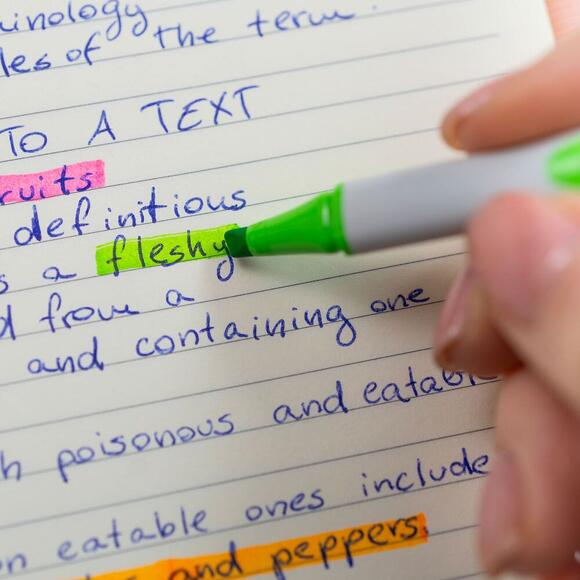 inology
les of the term.
TO A TEXT
ruits
definitious
s a fleshy
d from a
and containing one
h poisonous and eatabl
on eatable ones include
and peppers.